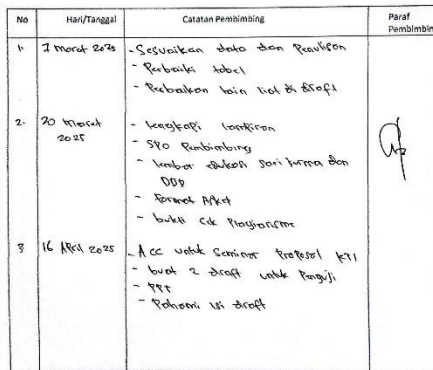 No Hari/Tanggal Catatan Pembimbing Paraf Pembimbing
1. 7 Maret 2025 - Sesuaikan data dan Penulisan
- Perbaiki tabel
- Perbaikan lain liat di draft
2. 20 Maret 2025 - lengkapi lampiran
- SPO Pembimbing
- lembar edukasi sari kurma dan
DDD
- Format Asket
- bukti Cek Plagiarisme
3 16 April 2025 - Acc untuk Seminar Proposal KTI
- buat 2 draft untuk Penguji
- PPT
- Pahami isi draft